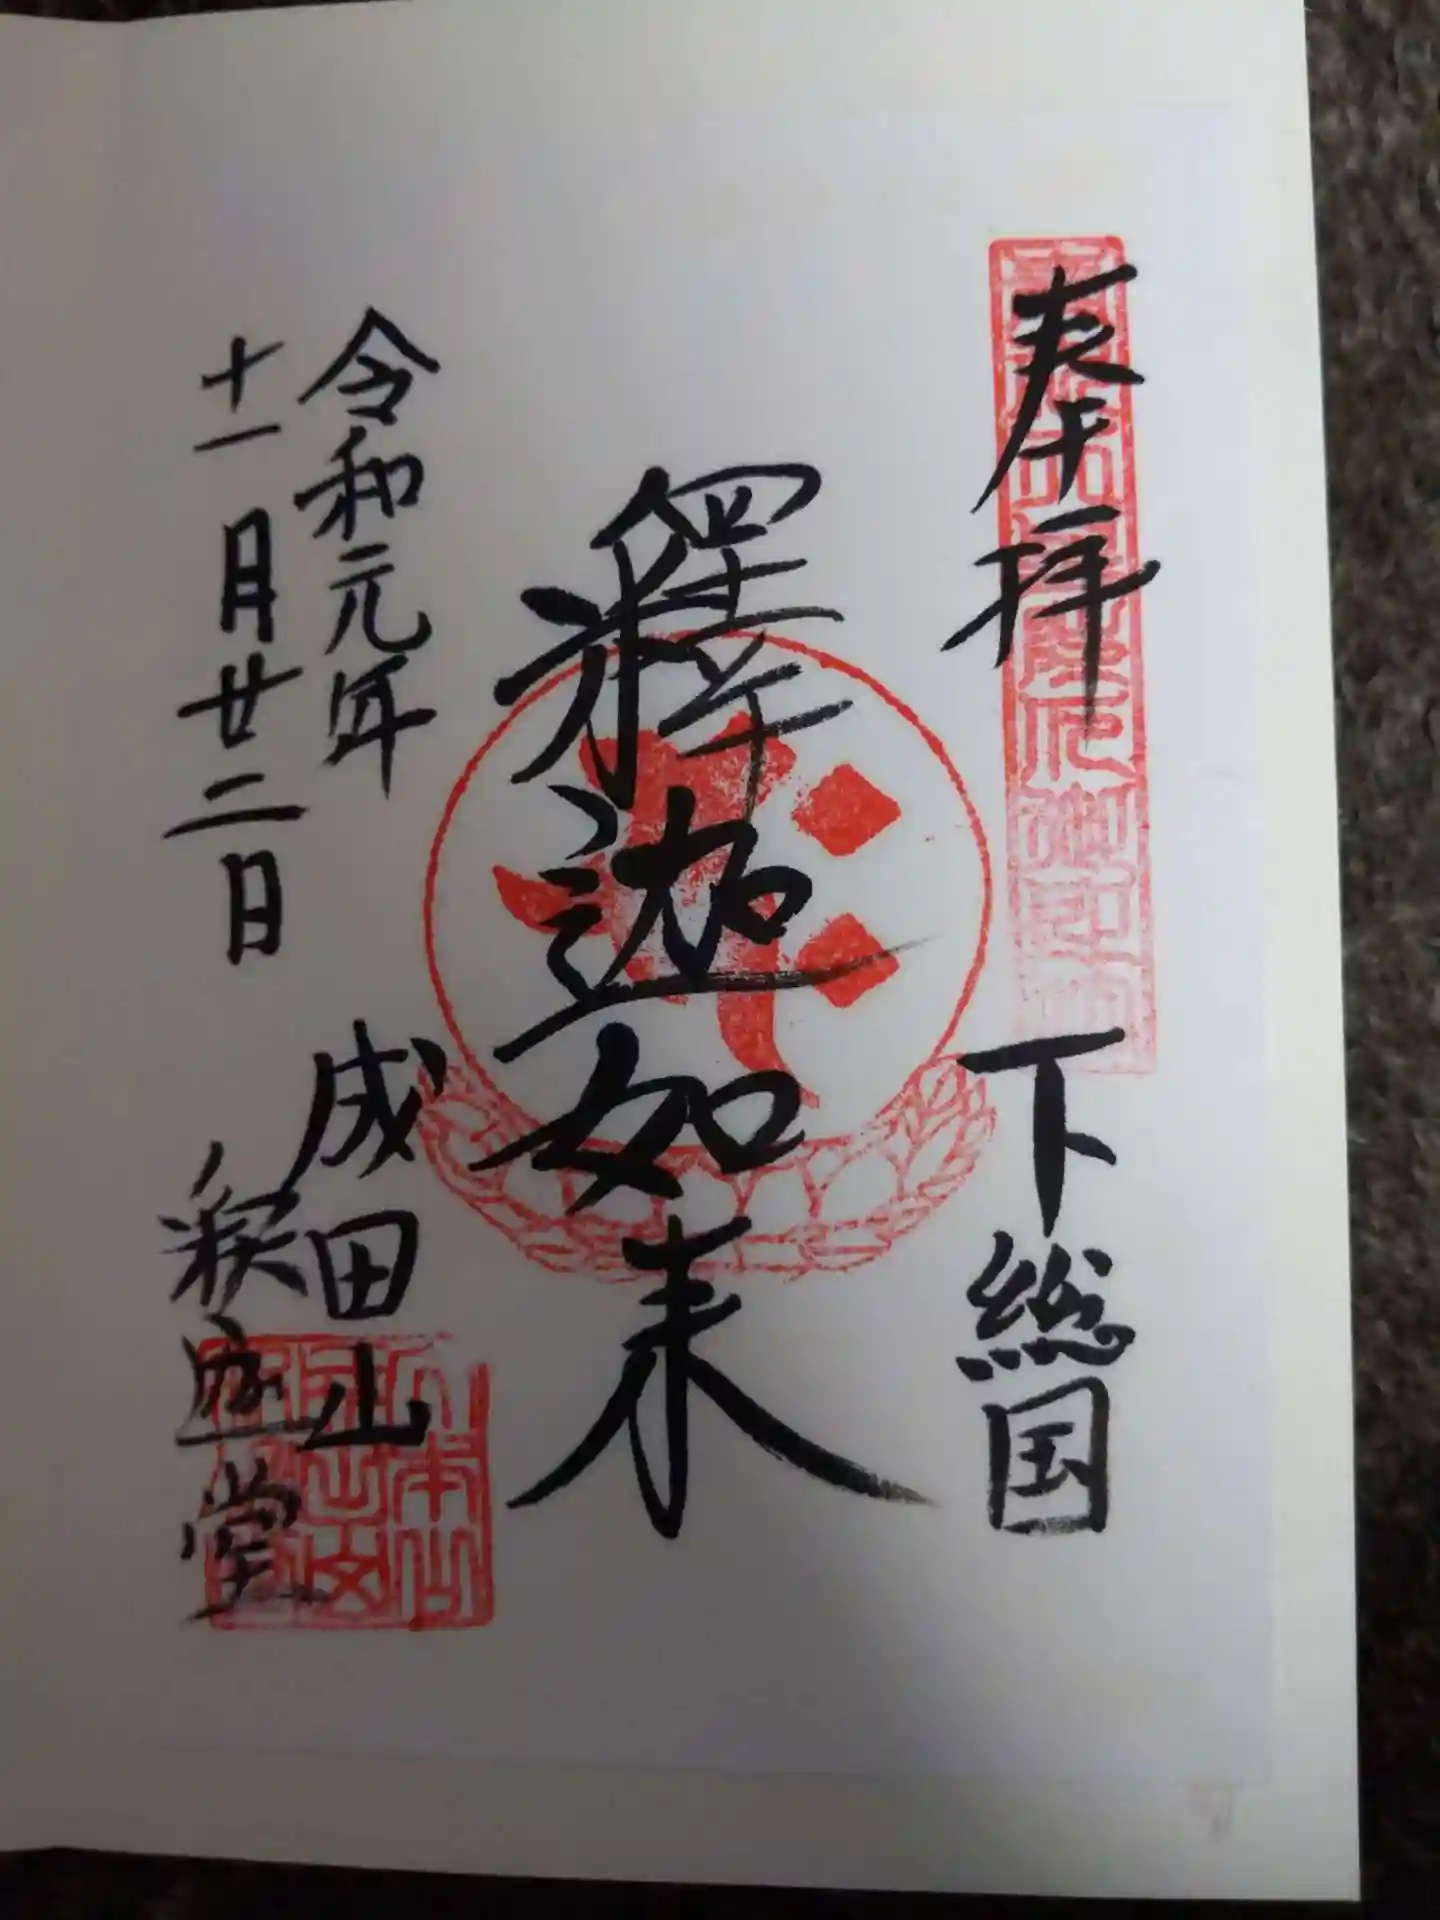 奉拝
下総国
釋迦如来
令和元年
十一月廿二日
成田山
釈迦堂